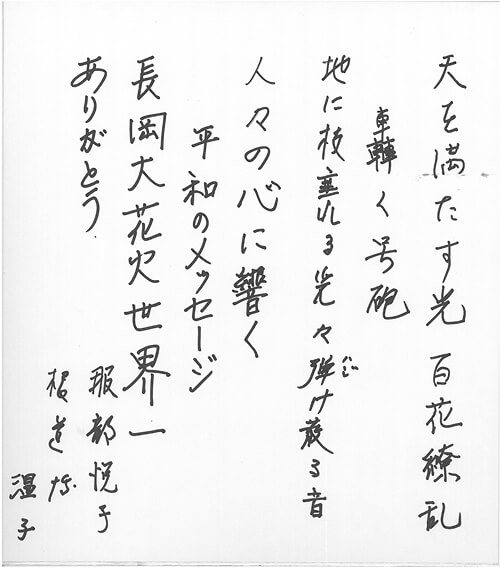 天を満たす光 百花繚乱
轟く号砲
地に枝垂れる光々弾け散る音
はじ
人々の心に響く
平和のメッセージ
長岡大花火世界一
ありがとう
服部悦子
温子